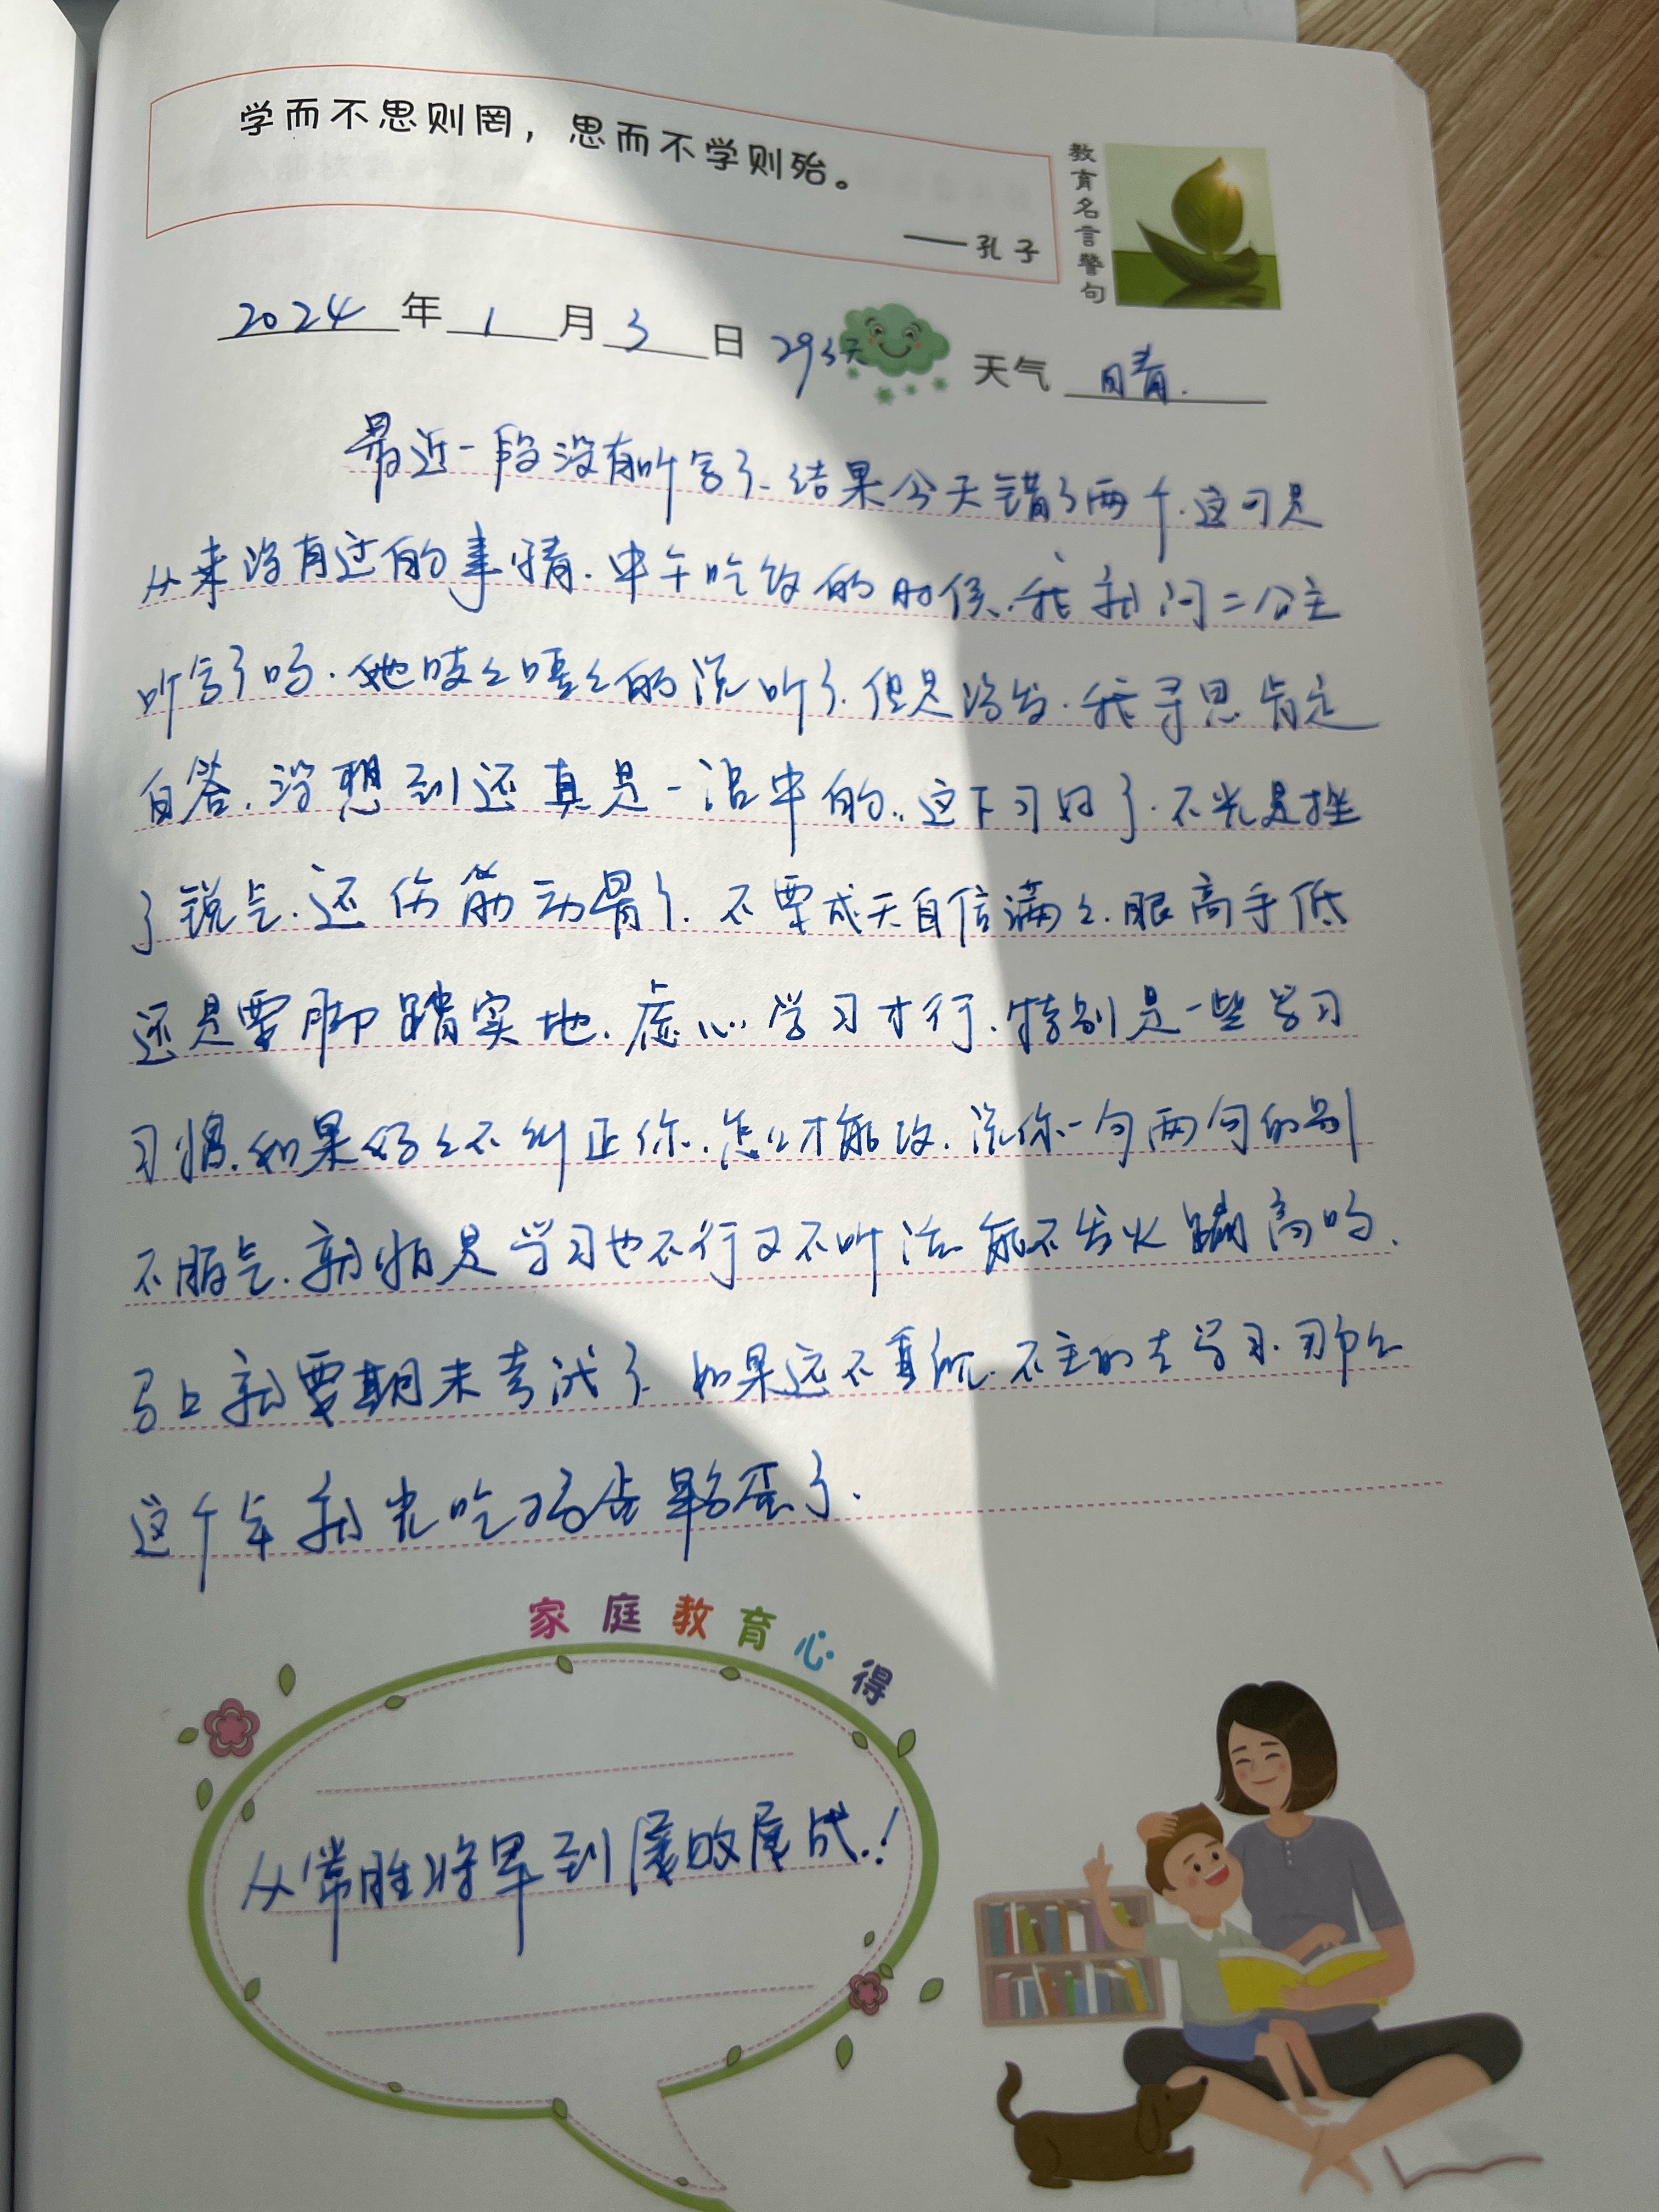 学而不思则罔，思而不学则殆。
——孔子
教育名言警句
2024年1月3日 293天 天气 晴.
最近一段没有听写了.结果今天错了两个.这可是
从来没有过的事情.中午吃饭的时候.我就问二公主
听写了吗.她吱々唔々的说听了.但是没发.我寻思肯定
白答.没想到还真是一语中的.这下可好了.不光是挫
了锐气.还伤筋动骨了.不要成天自信满々.眼高手低
还是要脚踏实地.虚心学习才行.特别是一些学习
习惯.如果好々不纠正你.怎么才能改.说你一句两句的别
不服气.就怕是学习也不行又不听话.能不发火蹦高吗.
马上就要期末考试了.如果还不重视.不主的去学习.那么
这个年就光吃鸡蛋鸭蛋了.
家庭教育心得
从常胜将军到屡败屡战.!